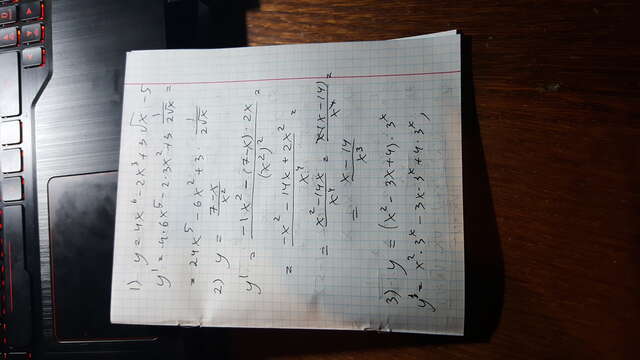 1) y = 4x⁶ - 2x³ + 3√x - 5
y' = 4·6x⁵ - 2·3x² + 3 1/(2√x) =
= 24x⁵ - 6x² + 3· 1/(2√x)
2) y = (7-x)/x²
y' = (-1x² - (7-x)·2x)/(x²)² =
= (-x² - 14x + 2x²)/x⁴ =
= (x² - 14x)/x⁴ = (x(x-14))/x⁴ =
= (x - 14)/x³
3) y = (x² - 3x + 4)·3ˣ
y' = x²·3ˣ - 3x·3ˣ + 4·3ˣ,